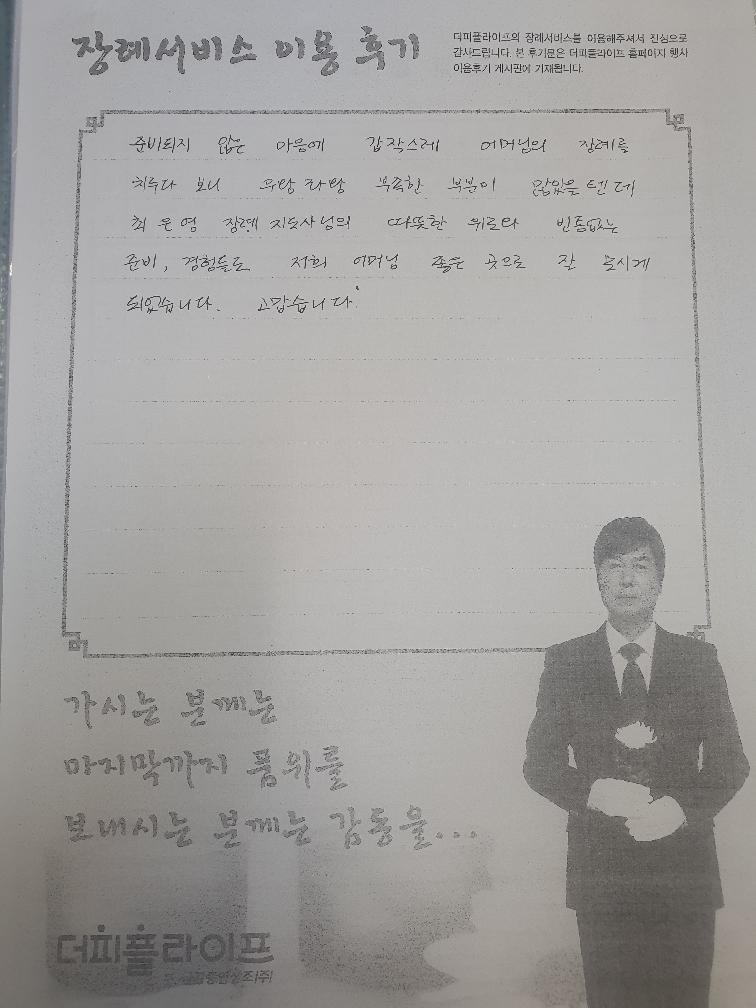 장례서비스 이용 후기
더피플라이프의 장례서비스를 이용해주셔서 진심으로
감사드립니다. 본 후기문은 더피플라이프 홈페이지 행사
이용후기 게시판에 기재됩니다.
준비되지 않은 마음에 갑작스레 어머님의 장례를
치루다 보니 우왕좌왕 부족한 부분이 많았을텐데
최은영 장례지도사님의 따뜻한 위로와 빈틈없는
준비, 경험들로 저희 어머님 좋은 곳으로 잘 모시게
되었습니다. 고맙습니다.
가시는 분께는
마지막까지 품위를
보내시는 분께는 감동을...
더피플라이프